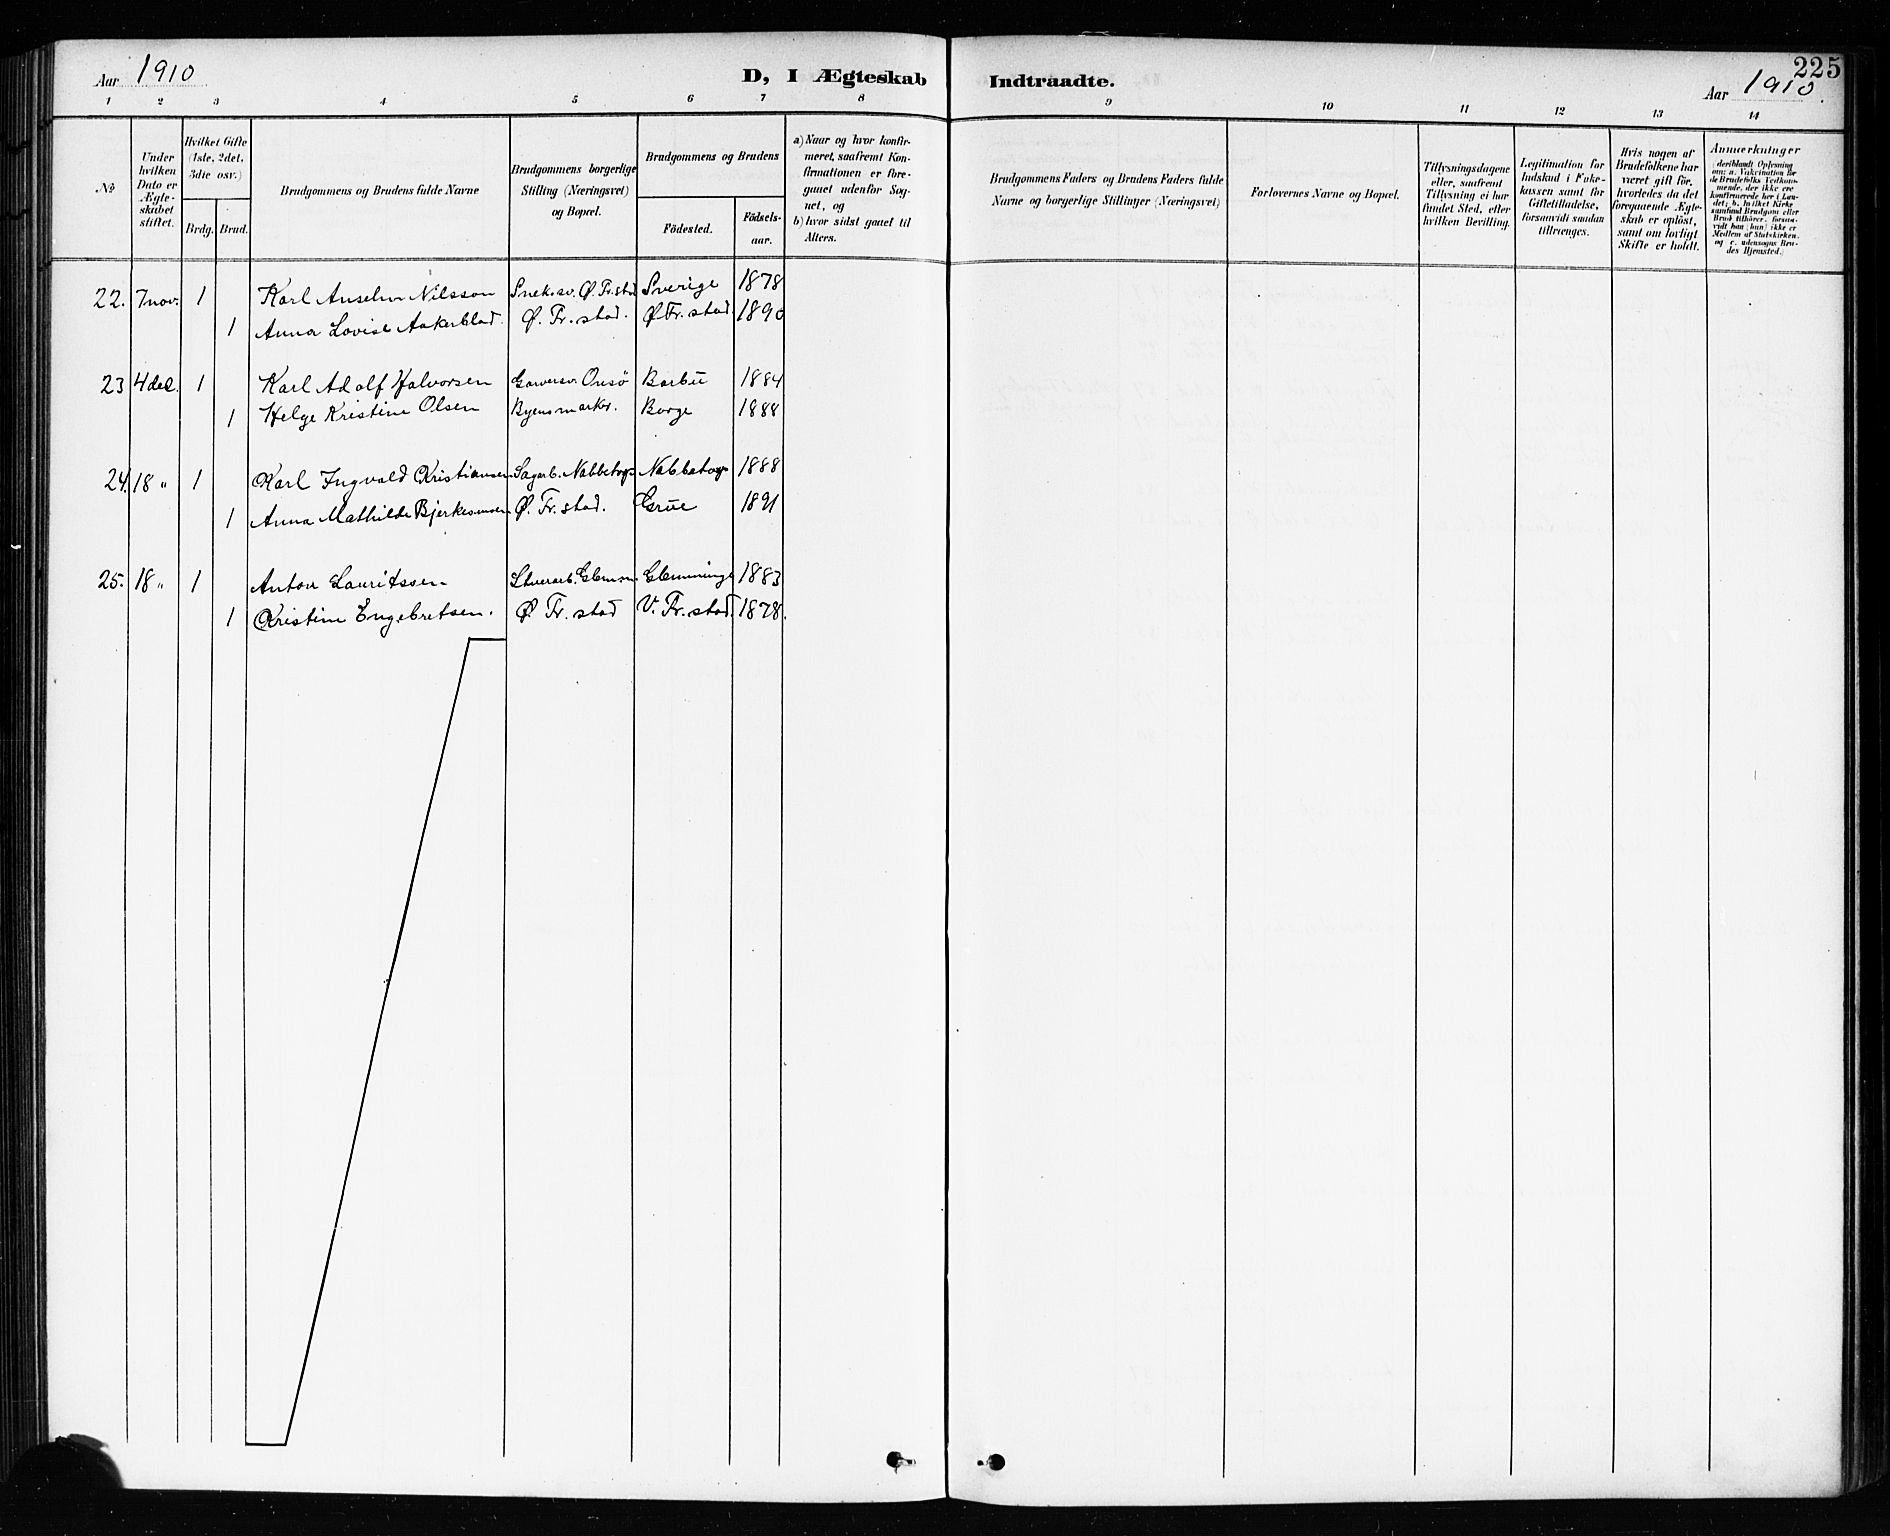 225
Aar 1910
D, I Ægteskab Indtraadte.
Aar 1910.
1 2 3 4 5 6 7 8 9 10 11 12 13 14
No
Under
hvilken
Dato er
Ægte-
skabet
stiftet.
Hvilket Gifte
(1ste, 2det,
3die osv.)
Brdg. Brud.
Brudgommens og Brudens fulde Navne
Brudgommens borgerlige
Stilling (Næringsvei)
og Bopæl.
Brudgommens og Brudens
Födested.
Födsels-
aar.
a) Naar og hvor konfir-
meret, saafremt Kon-
firmationen er fore-
gaaet udenfor Sog-
net, og
b) hvor sidst gaaet til
Alters.
Brudgommens Faders og Brudens Faders fulde
Navne og borgerlige Stillinger (Næringsvei)
Forlovernes Navne og Bopæl.
Tillysningsdagene
eller, saafremt
Tillysning ei har
fundet Sted, efter
hvilken Bevilling.
Legitimation for
Indskud i Enke-
kassen samt for
Giftetilladelse,
forsaavidt saadan
tiltrænges.
Hvis nogen af
Brudefolkene har
været gift för,
hvorledes da det
foregaaende Ægte-
skab er oplöst,
samt om lovligt
Skifte er holdt.
Anmærkninger
(deriblandt Oplysning
om: a. Vakcination for
de Brudefolks Vedkom-
mende, der ikke ere
konfirmerede her i Lan-
det; b. hvilket Kirke
samfund Brudgom eller
Brud tilhører, forsaa-
vidt han (hun) ikke er
Medlem af Statskirken,
og c. udensogns Bru-
des Hjemsted.)
22. 7 nov. 1 Karl Anselm Nilsson Snek.sv. Ø. Fr.stad Sverige 1878
1 Anna Lovise Aakerblad. Ø. Fr. stad. Ø Fr. stad. 1890
23 4 dec. 1 Karl Adolf Halvorsen Garversv. Onsö Barbu 1884
1 Helge Kristine Olsen Byens marker. Borge 1888
24. 18 " 1 Karl Ingvald Kristiansen Sagarb. Nabbetorp Nabbetorp 1888
1 Anna Mathilde Bjerkesmoen Ø. Fr. stad. Grue 1891
25. 18 " 1 Anton Lauritssen Glemminge 1883
1 Kristine Engebretsen. Ø Fr. stad V. Fr. stad. 1878.